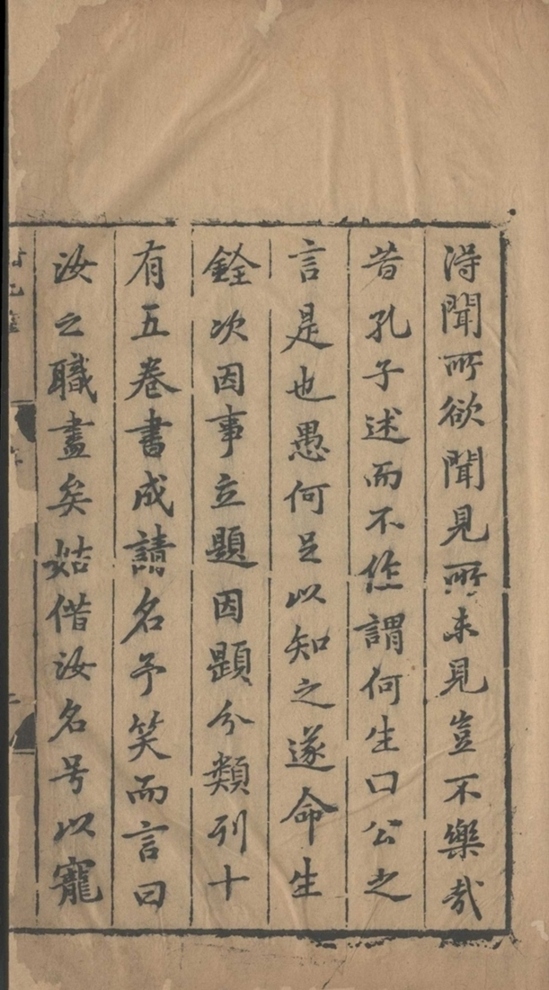 得聞所欲聞見所未見豈不樂哉
昔孔子述而不作謂何生曰公之
言是也愚何足以知之遂命生
銓次因事立題因題分類列十
有五卷書成請名予笑而言曰
汝之職盡矣姑借汝名号以寵